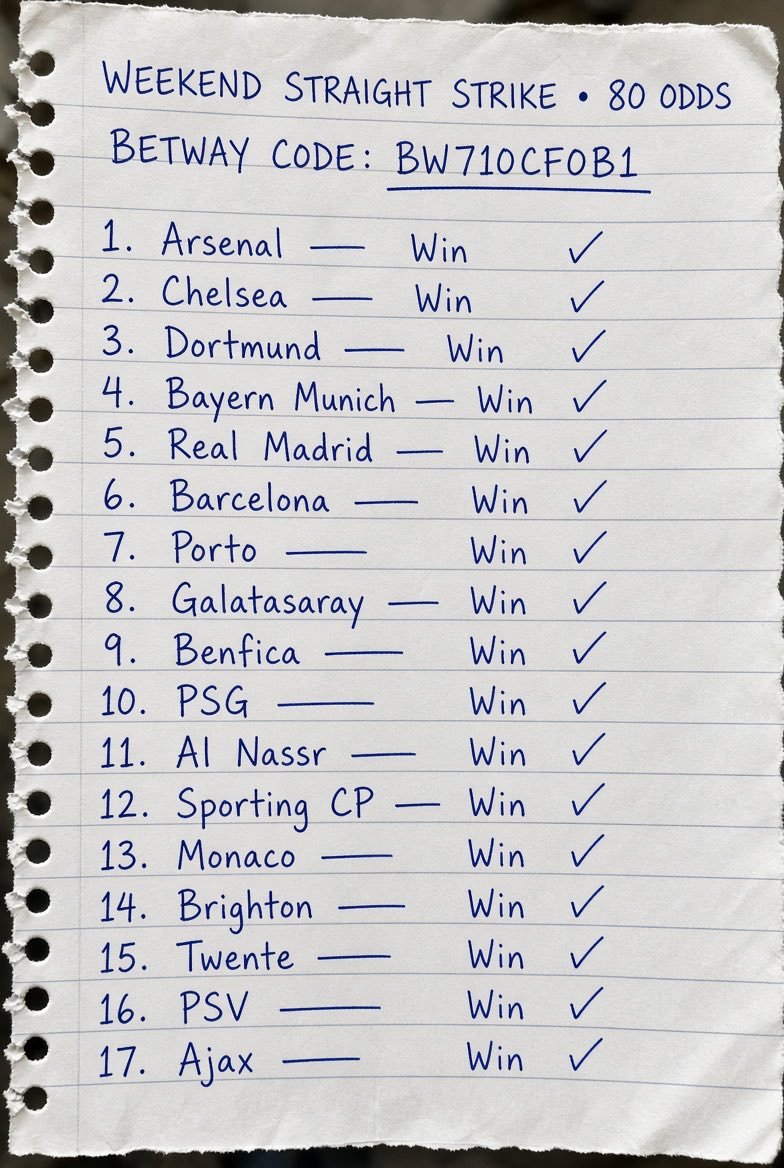 WEEKEND STRAIGHT STRIKE • 80 ODDS
BETWAY CODE: BW710CF0B1
1. Arsenal — Win ✓
2. Chelsea — Win ✓
3. Dortmund — Win ✓
4. Bayern Munich — Win ✓
5. Real Madrid — Win ✓
6. Barcelona — Win ✓
7. Porto — Win ✓
8. Galatasaray — Win ✓
9. Benfica — Win ✓
10. PSG — Win ✓
11. Al Nassr — Win ✓
12. Sporting CP — Win ✓
13. Monaco — Win ✓
14. Brighton — Win ✓
15. Twente — Win ✓
16. PSV — Win ✓
17. Ajax — Win ✓